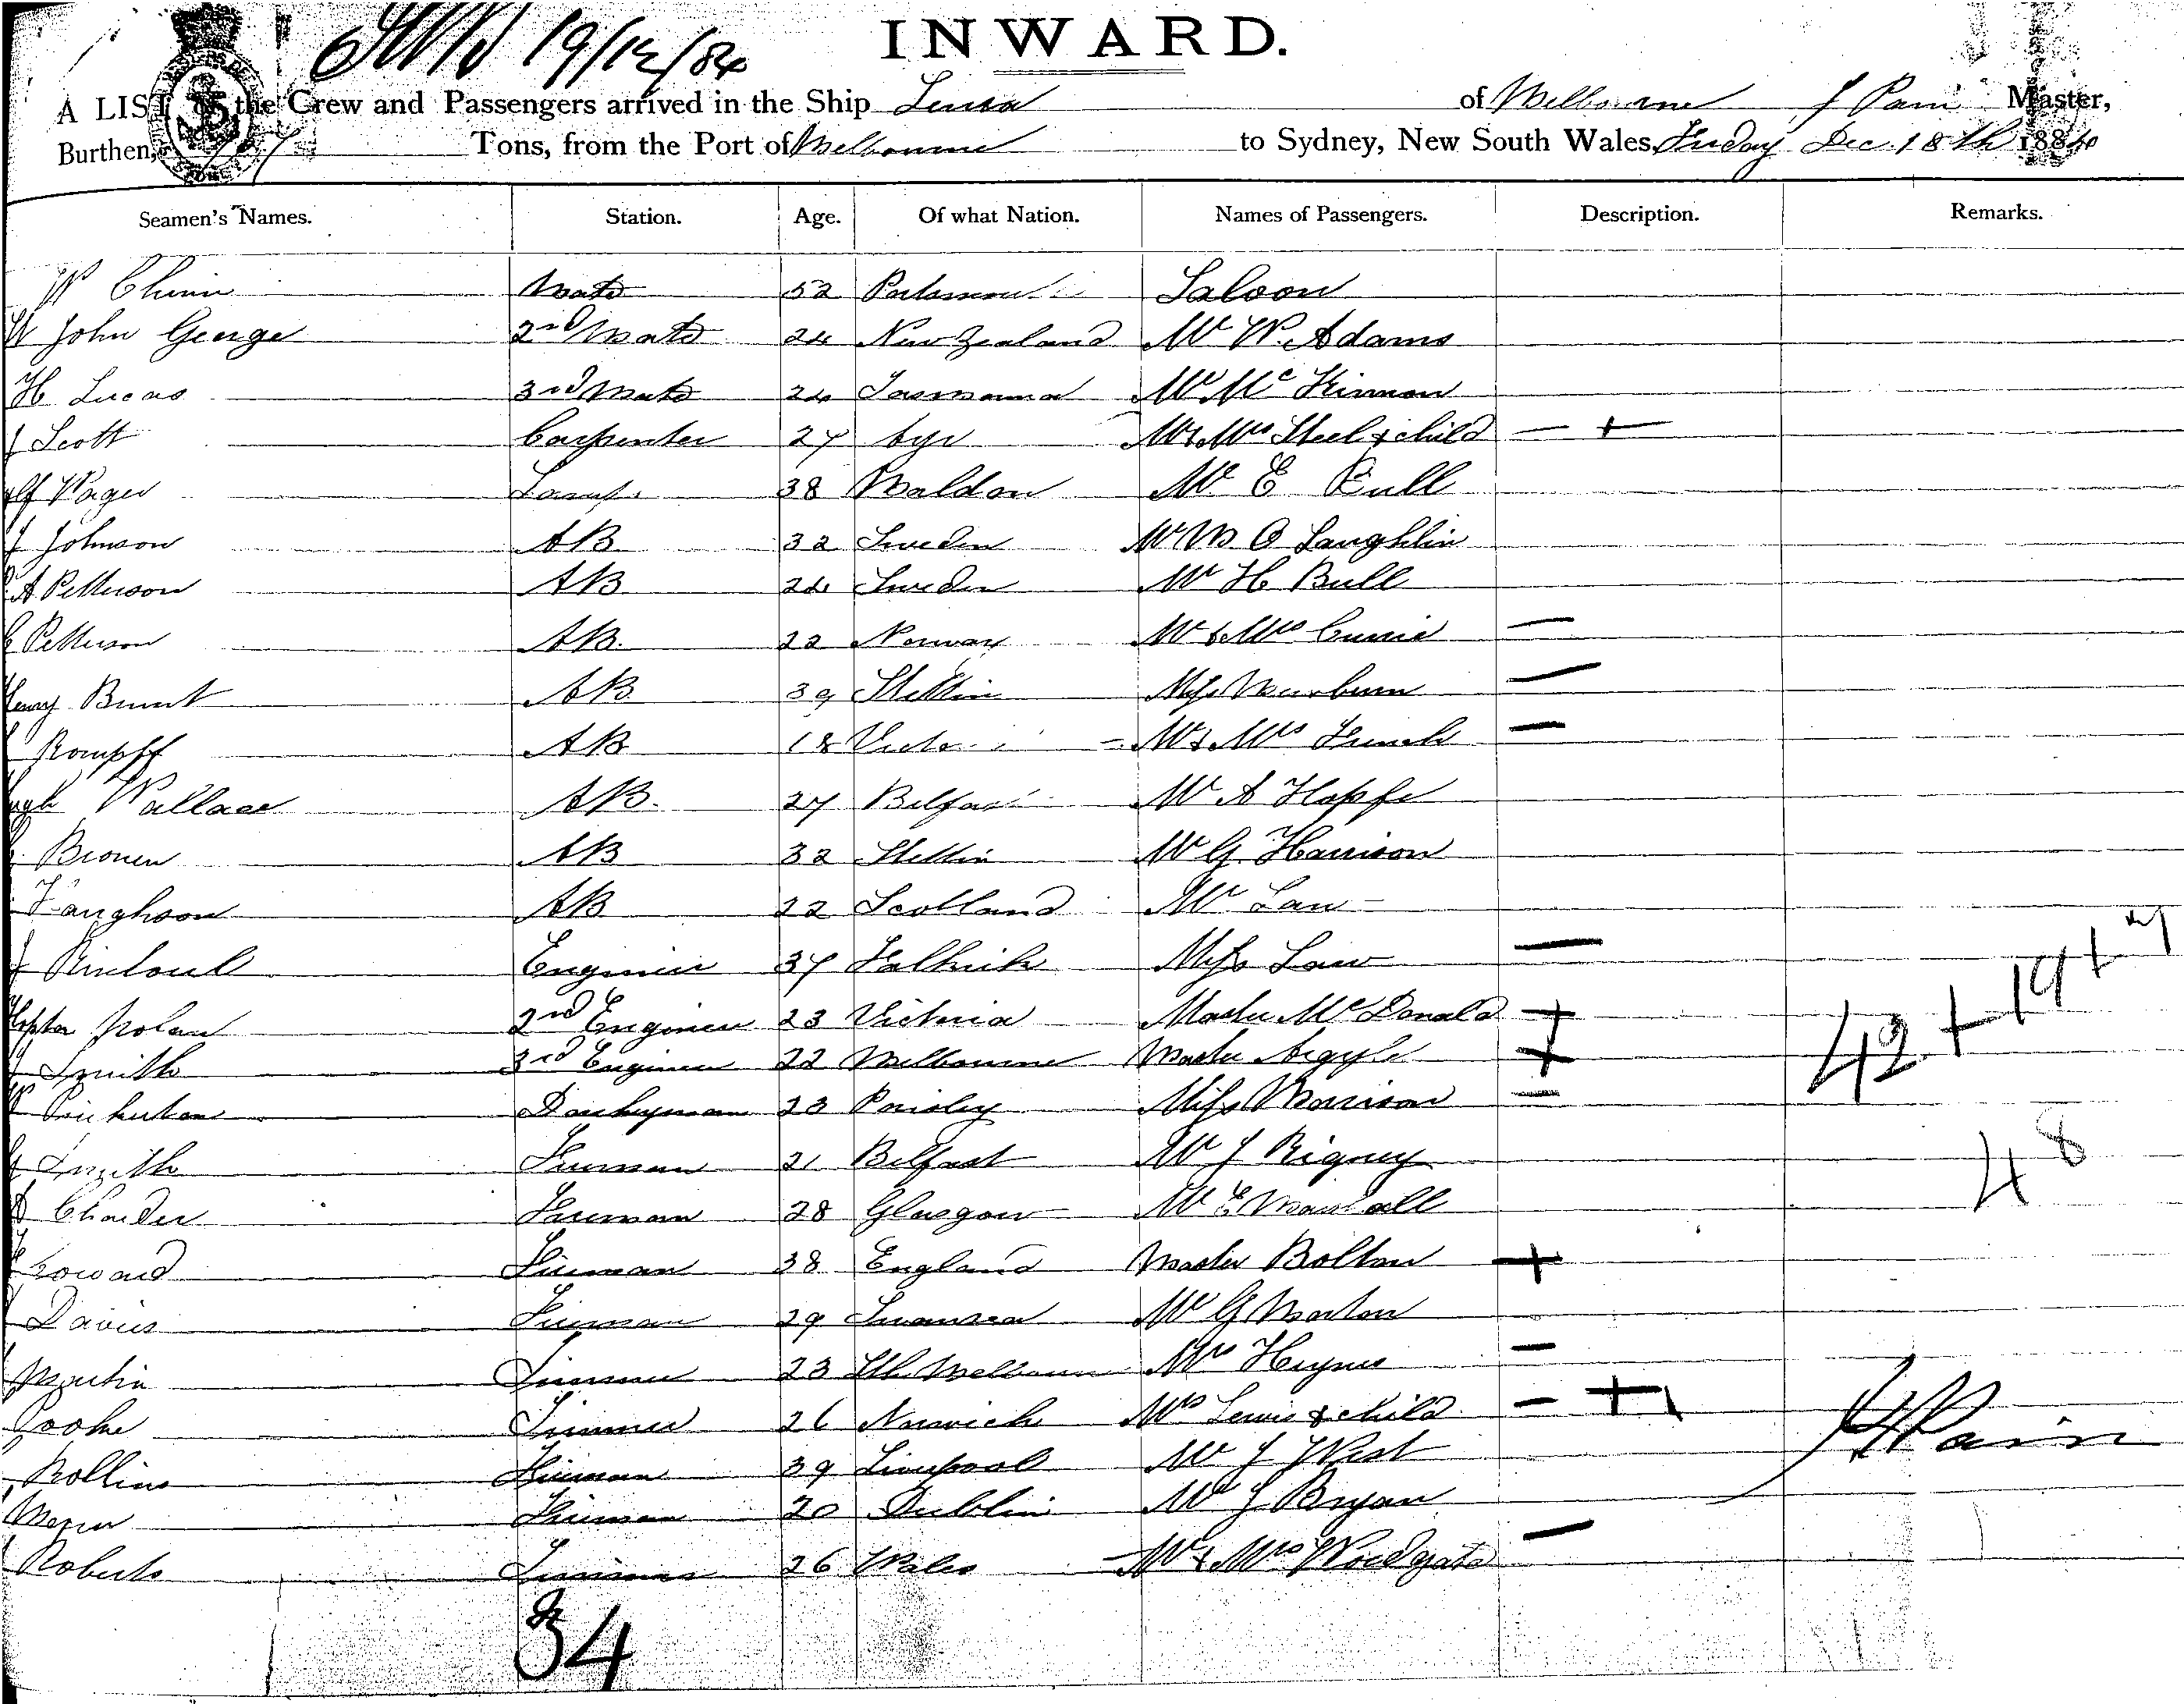 19/12/84
INWARD.
A LIST of the Crew and Passengers arrived in the Ship of Melbourne J Pain Master,
Burthen, Tons, from the Port of Melbourne to Sydney, New South Wales, Dec. 18th 1884
Seamen's Names. Station. Age. Of what Nation. Names of Passengers. Description. Remarks.
W Chinn Mate 52 Saloon
W John George 2nd Mate 24 New Zealand Mr W. Adams
H Lucas 3rd Mate 24 Tasmania Mr Mc Kinnon
J Scott Carpenter 27 Ayr Mr & Mrs Steel & child — +
Alf Wager Lamps 38 Maldon Mr E Bull
J Johnson AB 32 Sweden Mr M O Laughlin
A Petterson AB 24 Sweden Mr H Bull
Petterson AB 22 Norway Mr & Mrs Currie —
Henry Brunt AB 39 Stettin Miss —
Kompff AB 18 Mr & Mrs —
Hugh Wallace AB 27 Belfast Mr A Hopfe
Bronen AB 32 Stettin Mr G Harrison
AB 22 Scotland Mr Law
J Rintoul Engineer 37 Falkirk Miss Law —
Nolan 2nd Engineer 23 Victoria Master Mc Donald +
J Smith 3rd Engineer 22 Melbourne Master Argyle +
Donkeyman 23 Paisley Miss Morrison —
42 + 19 +
J Smith Fireman 21 Belfast Mr J Rigney
48
Fireman 28 Glasgow Mr E Marshall
Howard Fireman 38 England Master Bolton +
Davies Fireman 29 Swansea Mr G Morton
Martin Trimmer 23 Sth Melbourne Mrs Heynes —
Cooke Trimmer 26 Norwich Mrs Lewis & child — +
Rollins Fireman 39 Liverpool Mr J West
J Pain
Fireman 20 Dublin Mr J Bryan
Roberts Trimmer 26 Wales Mr & Mrs Woodgate —
34